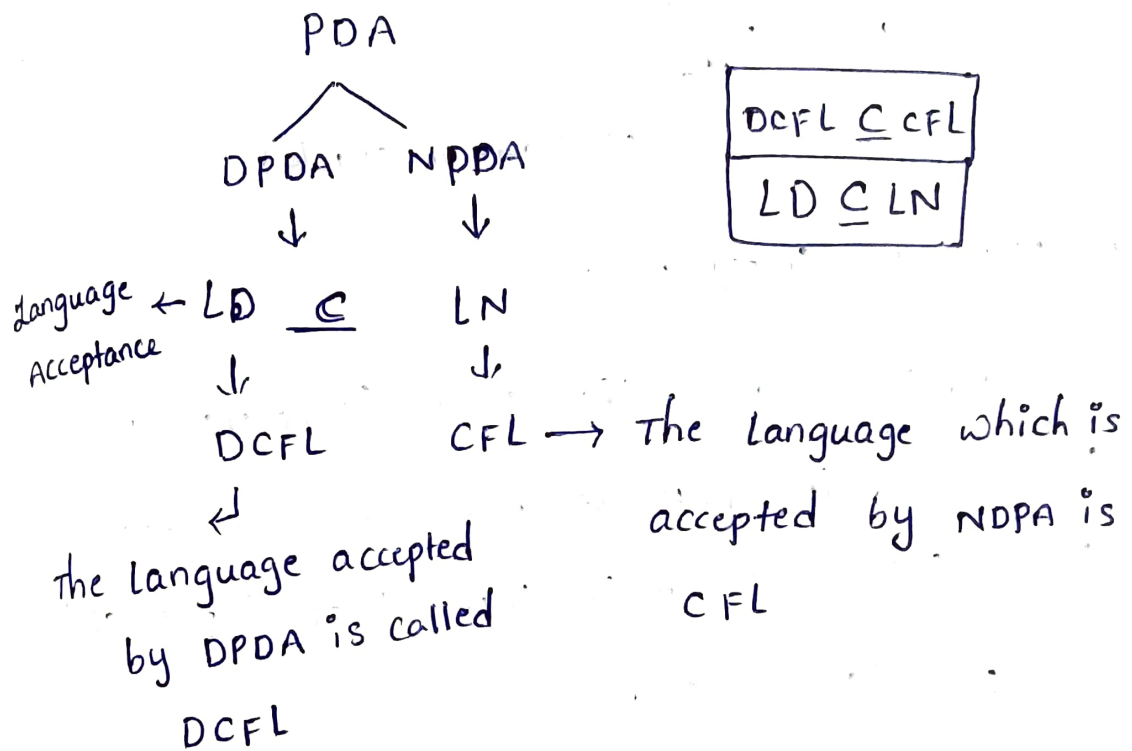 PDA
DPDA NPDA
DCFL ⊆ CFL
LD ⊆ LN
↓ ↓
Language ← LD ⊆ LN
Acceptance
↓ ↓
DCFL CFL → The language which is
accepted by NDPA is
CFL
↲
The language accepted
by DPDA is called
DCFL